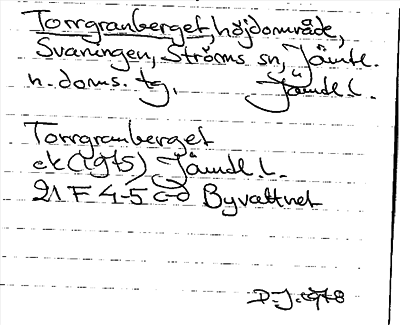 Torrgranberget, höjdområde,
Svaningen, Ströms sn, Jämtl.
n. doms. tg, Jämtl l.
Torrgranberget
ek (1975) Jämtl l.
21 F 4-5 c-d Byvattnet
D-J. 1978